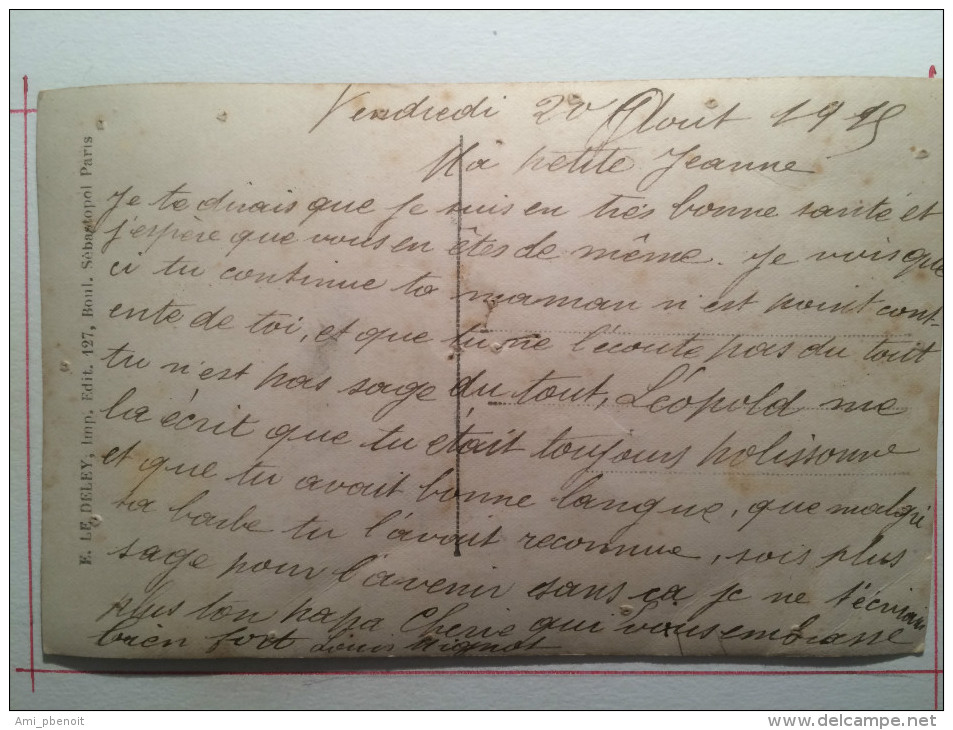 Vendredi 20 Aout 1915
Ma petite Jeanne
Je te dirais que je suis en très bonne santé et
j'espère que vous en êtes de même. Je vois que
ci tu continue ta maman n'est point cont-
ente de toi, et que tu ne l'écoute pas du tout
tu n'est pas sage du tout, Léopold me
la écrit que tu était toujours polissonne
et que tu avait bonne langue, que malgré
sa barbe tu l'avait reconnue, sois plus
sage pour l'avenir sans ça je ne t'écrirai
plus ton papa Cherie qui vous embrasse
bien fort Louis Mignot
E. LE DELEY, Imp. Edit. 127, Boul. Sébastopol Paris
Ami_pbenoit
delcampe.net